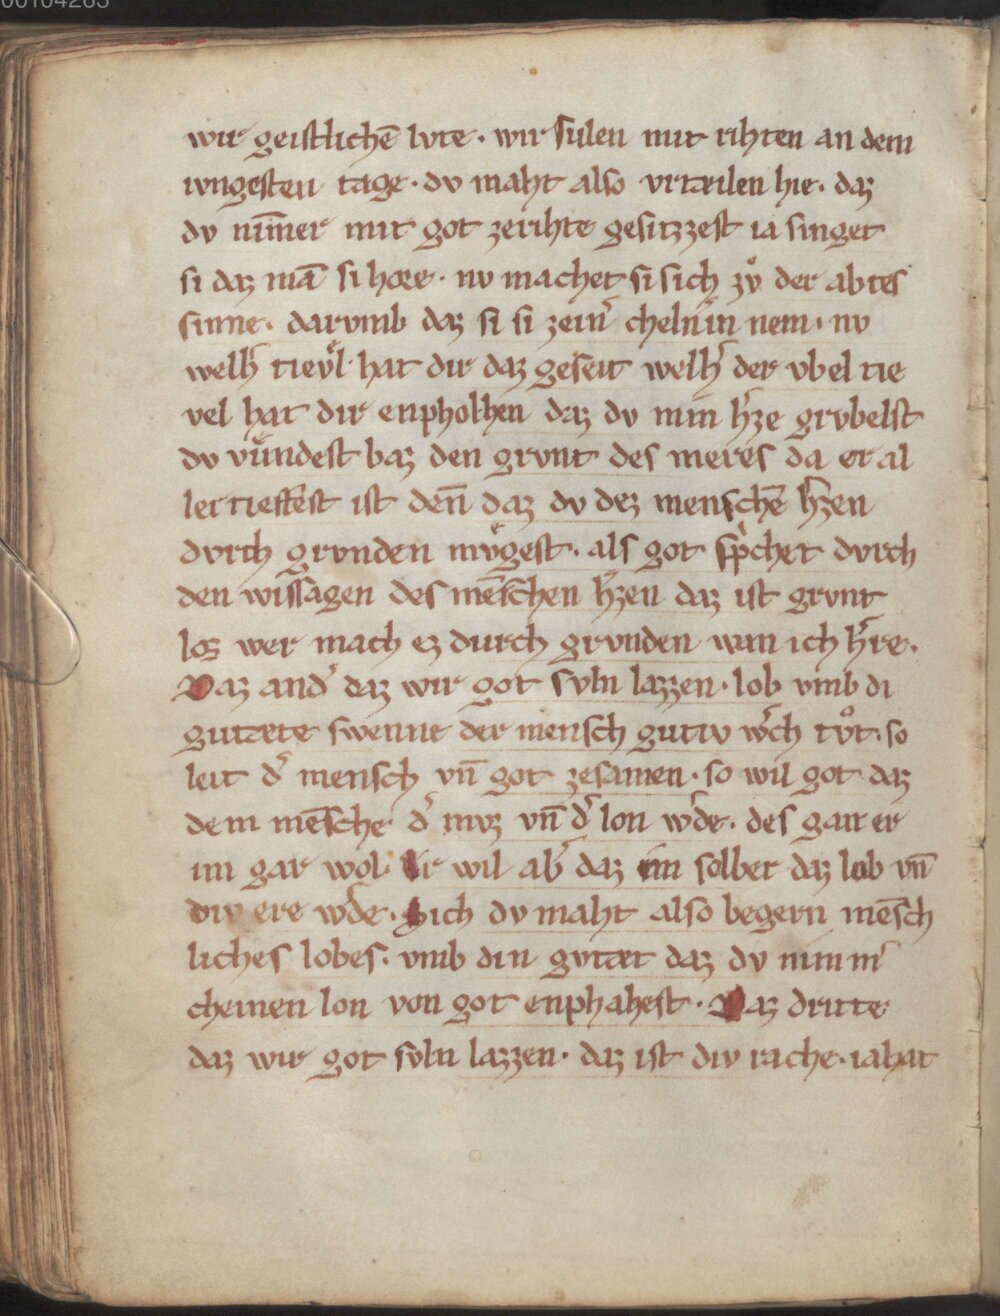 00104263
wir geistlichē lvte · wir sulen mit rihten an dem
ivngesten tage · dv maht also vrtæilen hie · daz
dv nim̄er mit got zerihte gesitzzest ia singet
si daz mā si hœre · nv machet si sich zv̊ der abtes
sinne · darvmb daz si si zein̾ chelnͤin nem · nv
welh̾ tievͤl hat dir daz geseit welh̾ der vbel tie
vel hat dir enpholhen daz dv min h̾ze grvbelst
dv vuͤndest baz den grvnt des meres da er al
ler tieffest ist den̄ daz dv dez menschē h̾zen
dvrch grvnden mvͤgest · als got sp̾chet dvrch
den wissagen des mēschen h̾zen daz ist grvnt
los wer mach ez durch grvnden wan ich h̾re ·
Daz and̾ daz wir got svln lazzen · lob vmb di
gutæte swenne der mensch gutiv w̾ch tv̊t · so
leit d̾ mensch vn̄ got zesamen · so wil got daz
dem mēsche d̾ nvz vn̄ d̾ lon w̾de · des gan er
im gar wol · Er wil ab̾ daz im selber daz lob vn̄
div ere w̾de · Sich dv maht also begern mēsch
liches lobes · vmb din gvtæt daz dv nimm̾
cheinen lon von got enphahest · Daz dritte
daz wir got svln lazzen · daz ist div rache · ia hat